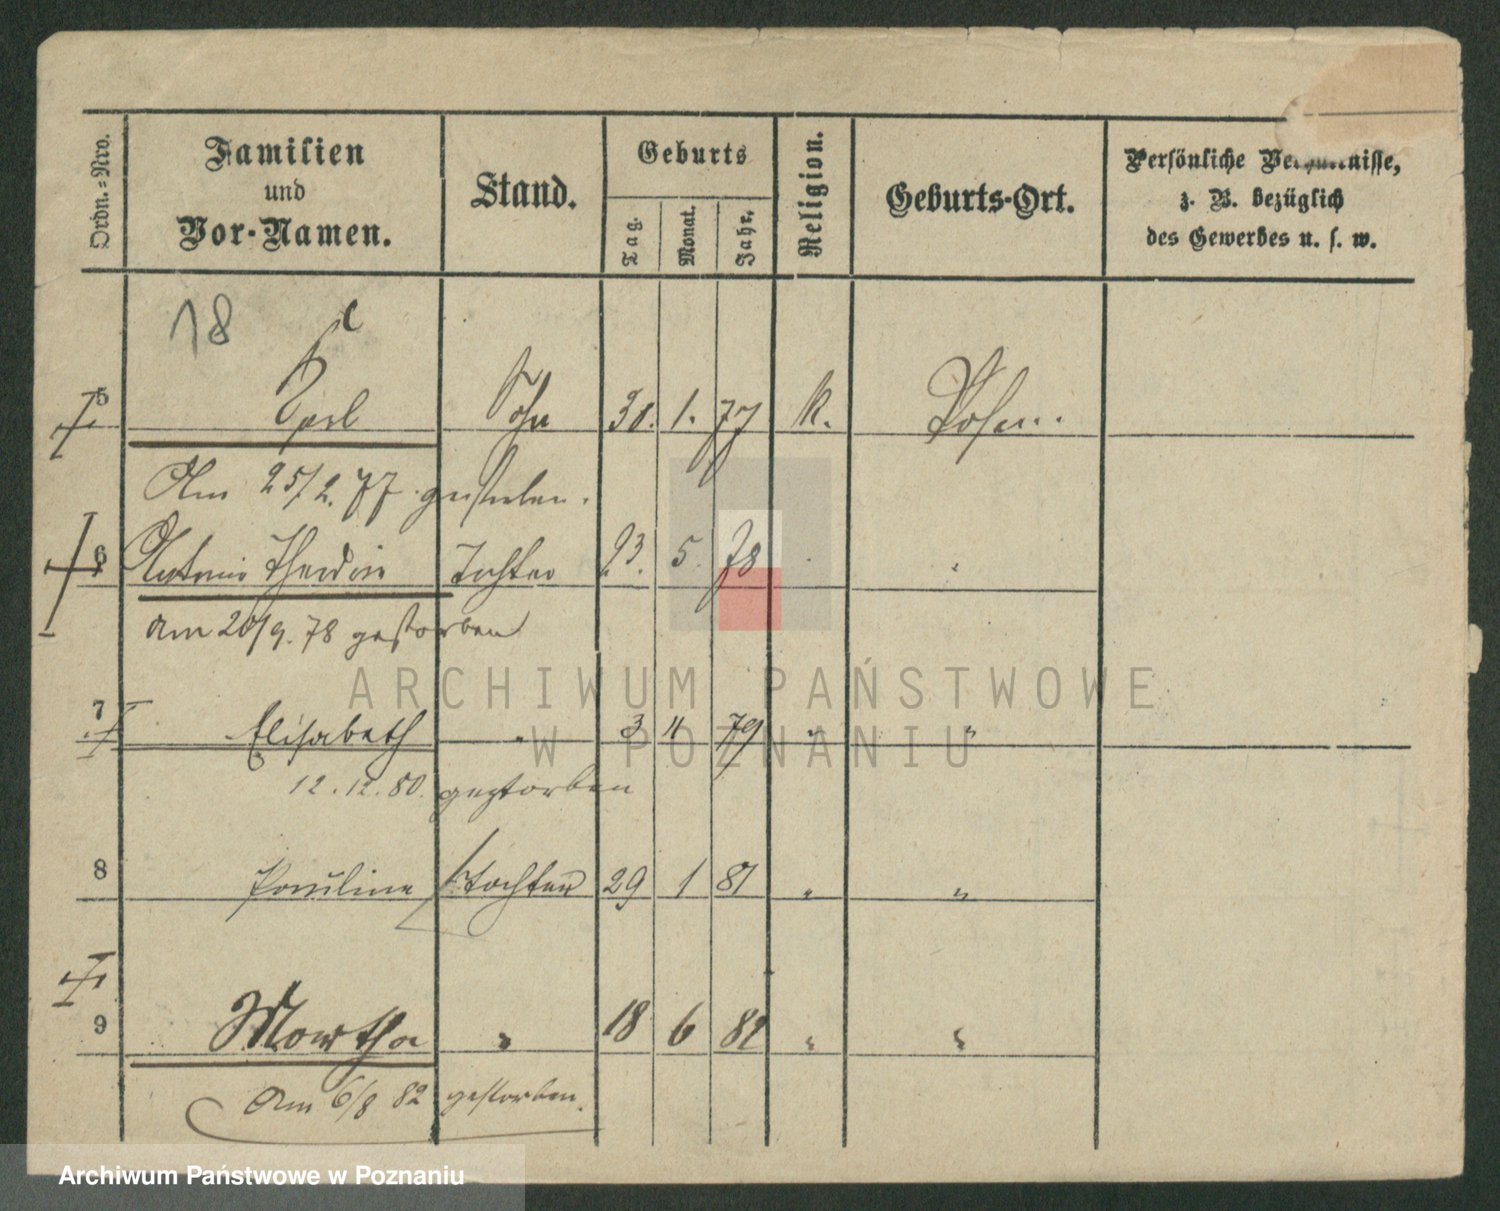 Ordn.=Nro.
Familien
und
Vor-Namen.
Stand.
Geburts
Tag.
Monat.
Jahr.
Religion.
Geburts-Ort.
Persönliche Verhältnisse,
z. B. bezüglich
des Gewerbes u. s. w.
18
5 Carl Sohn 30. 1. 77 k. Posen.
Am 25/2. 77 gestorben.
6 Antonie Tochter 23. 5. 78
am 20/9. 78 gestorben
7 Elisabeth " 3 4 79 " "
12.12.80. gestorben
8 Pauline Tochter 29 1 81 " "
9 Martha " 18 6 82 " "
Am 6/8 82 gestorben.
ARCHIWUM PAŃSTWOWE
W POZNANIU
Archiwum Państwowe w Poznaniu